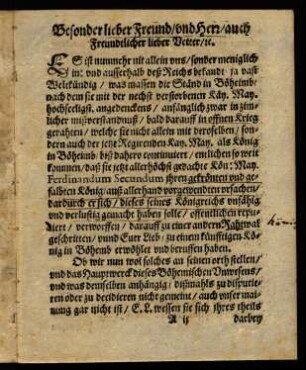 Besonder lieber Freund/ vnd Herr/ auch
Freundtlicher lieber Vetter/ ꝛc.
ES ist nunmehr nit allein vns/ sonder meniglich
in: vnd ausserhalb deß Reichs bekandt ja vast
Weltkündig/ was massen die Ständ in Böheimb/
nach dem sie mit der nechst verstorbenen Käy. May.
hochseeligst. angedenckens/ anfänglich zwar in zim-
licher mißverstandnuß/ bald darauff in offnen Krieg
gerahten/ welche sie nicht allein mit deroselben/ son-
dern auch der jetzt Regierenden Kay. May. als König
in Böheimb/ biß dahero continuiert/ entlichen so weit
kommen/ daß sie jetzt allerhöchst gedachte Kön: May.
Ferdinandum Secundum jhren gekrönten vnd ge-
salbten König/ auß allerhand vorgewendten vrsachen/
dardurch er sich/ dieses seines Königreichs vnfähig
vnd verlustig gemacht haben solle/ offentlichen repu-
diert/ verworffen/ darauff zu einer andern Rahtwal
geschritten/ vnnd Euer Lieb/ zu einem künfftigen Kö-
nig in Böhemb erwöhlet vnd beruffen haben.
Ob wir nun wol solches an seinen orth stellen/
vnd das Hauptwerck dieses Böhemischen Vnwesens/
vnd was demselben anhängig/ dißmahls zu disputie-
ren oder zu decidieren nicht gemeint/ auch vnser mai-
nung gar nicht ist/ E. L. wessen sie sich jhres theils
A ij darbey